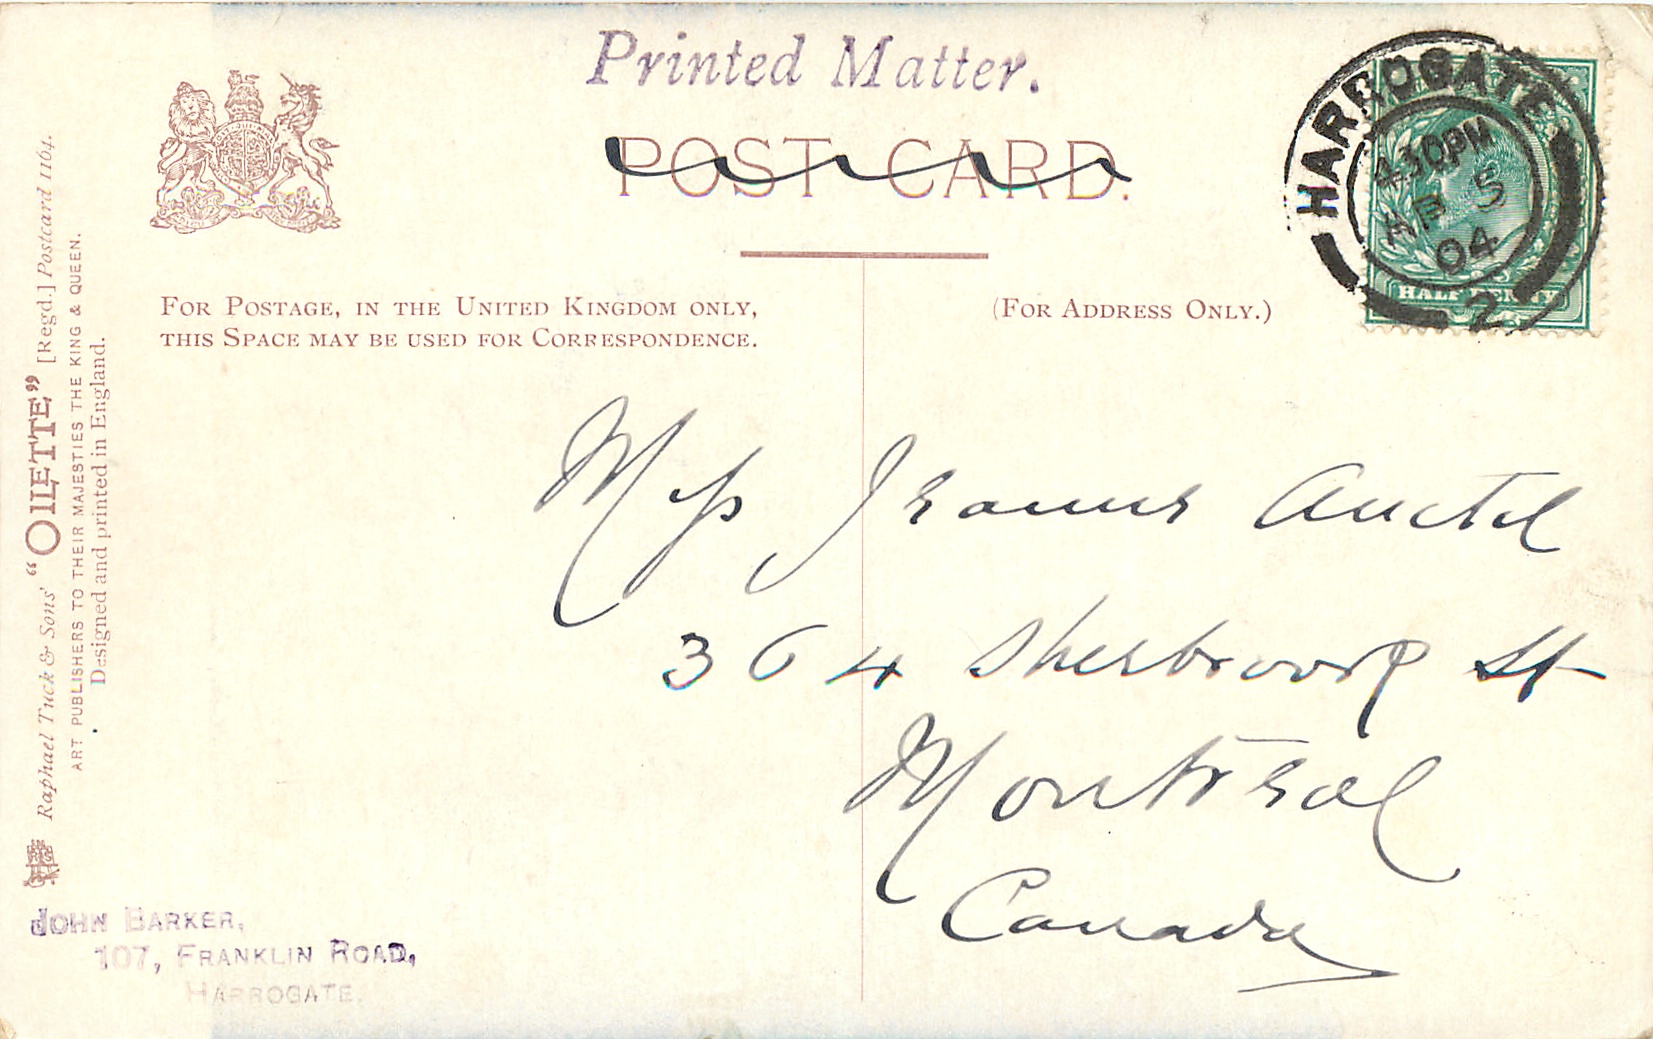 Printed Matter.
POST CARD.
FOR POSTAGE, IN THE UNITED KINGDOM ONLY,
THIS SPACE MAY BE USED FOR CORRESPONDENCE.
(FOR ADDRESS ONLY.)
HARROGATE
4.30PM
AP 5
04
2
HALF PENNY
Miss
364 Sherbrooke St
Montreal
Canada
Raphael Tuck & Sons' "OILETTE" [Regd.] Postcard 1164.
ART PUBLISHERS TO THEIR MAJESTIES THE KING & QUEEN.
Designed and printed in England.
JOHN BARKER,
107, FRANKLIN ROAD,
HARROGATE.